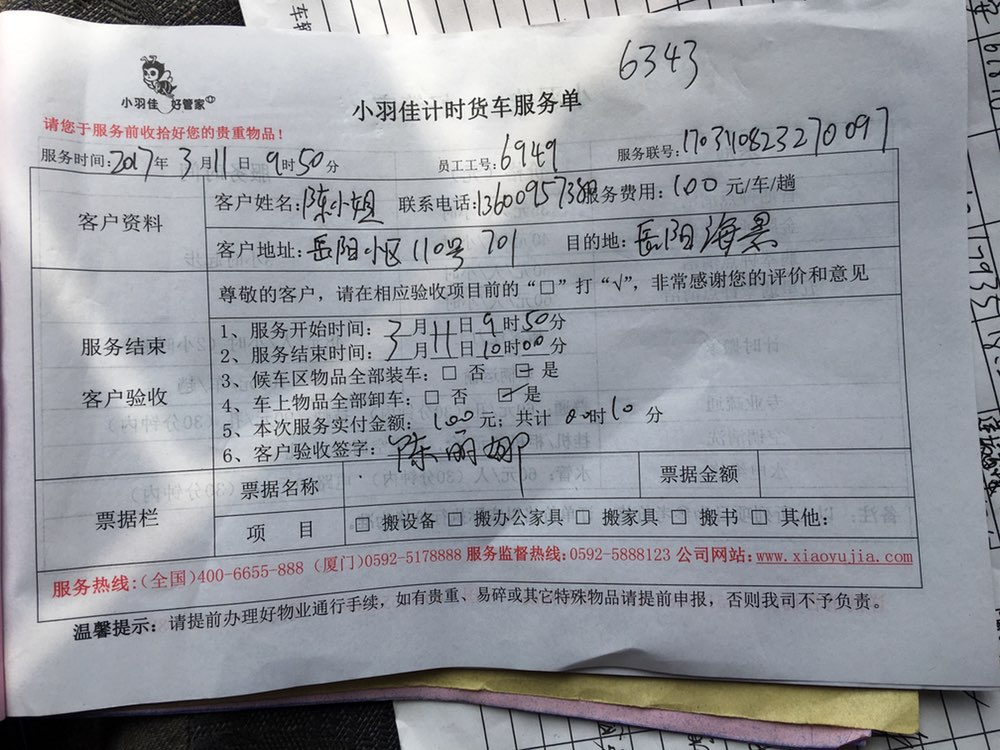 6343
小羽佳 好管家
小羽佳计时货车服务单
请您于服务前收拾好您的贵重物品！
服务时间：2017年 3月11日 9时50分 员工工号：6949 服务联号：1703110823270097
客户资料
客户姓名：陈小姐 联系电话：服务费用：100 元/车/趟
客户地址：岳阳小区110号701 目的地：岳阳海景
服务结束
客户验收
尊敬的客户，请在相应验收项目前的“□”打“√”，非常感谢您的评价和意见
1、服务开始时间：3月11日9时50分
2、服务结束时间：3月11日10时00分
3、候车区物品全部装车：□ 否 ☑ 是
4、车上物品全部卸车：□ 否 ☑ 是
5、本次服务实付金额：100元；共计 00时10分
6、客户验收签字：陈丽娜
票据栏
票据名称 票据金额
项 目 □ 搬设备 □ 搬办公家具 □ 搬家具 □ 搬书 □ 其他：
服务热线：（全国）400-6655-888（厦门）0592-5178888 服务监督热线：0592-5888123 公司网站：www.xiaoyujia.com
温馨提示：请提前办理好物业通行手续，如有贵重、易碎或其它特殊物品请提前申报，否则我司不予负责。